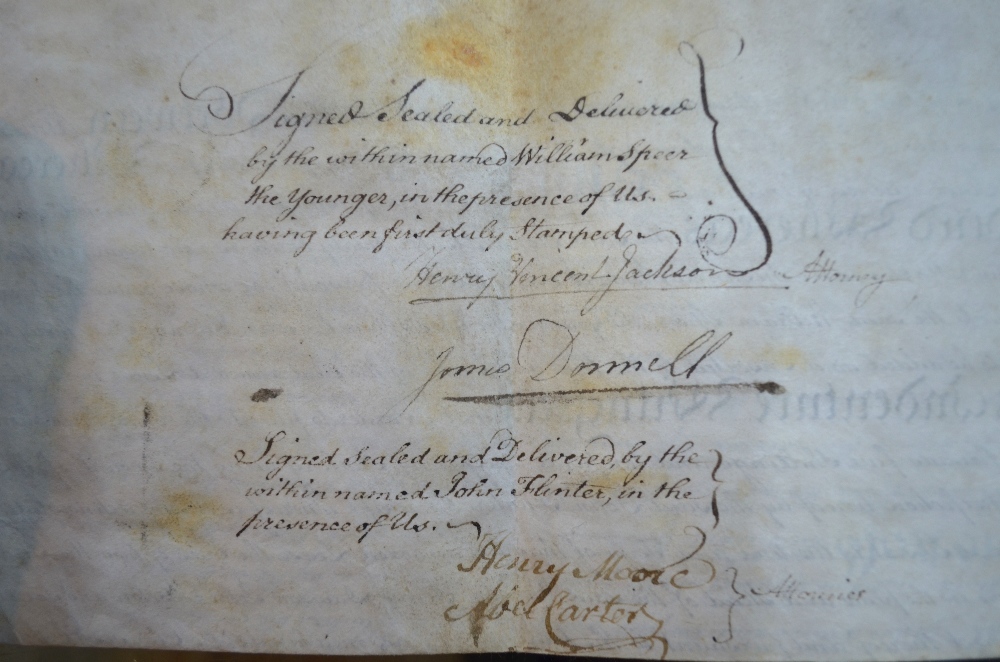 Signed Sealed and Delivered
by the within named William Speer
the Younger, in the presence of Us.
having been first duly Stamped
Henry Vincent Jackson Attorney
James Donnell
Signed Sealed and Delivered, by the
within named John Flinter, in the
presence of Us.
Henry Moore
Abel Carter Attornies